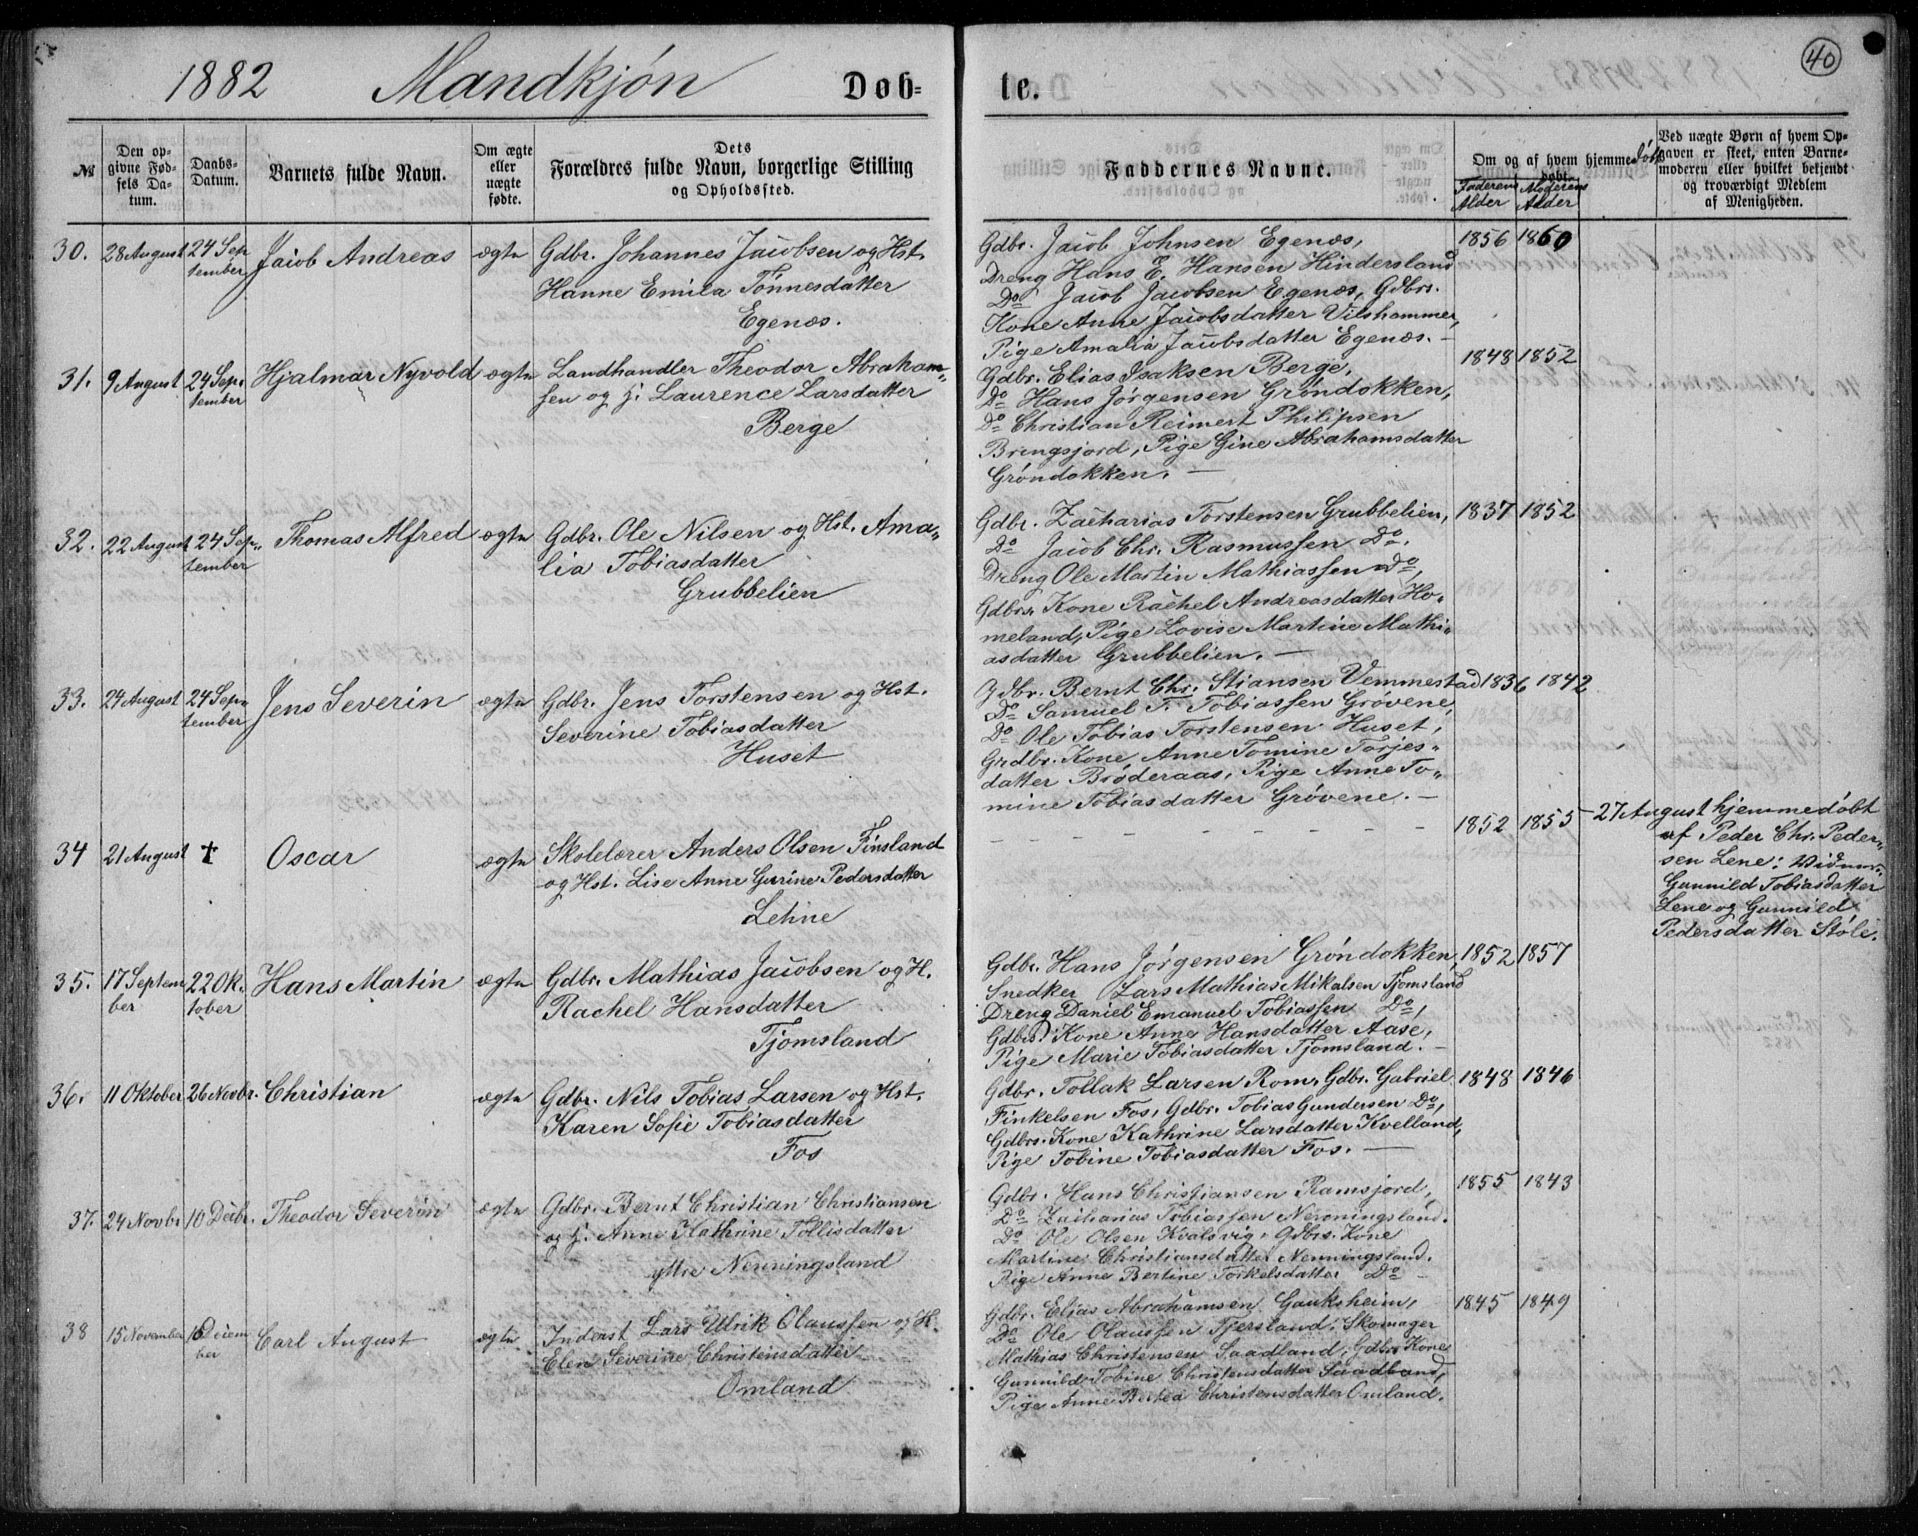 40
1882 Mandkjøn Døb=te.
№ | Den opgivne Fødsels Datum. | Daabs-Datum. | Barnets fulde Navn. | Om ægte eller uægte fødte. | Dets Forældres fulde Navn, borgerlige Stilling og Opholdssted. | Faddernes Navne. | Om og af hvem hjemmedøbt. Faderens Alder | Moderens Alder | Ved uægte Børn af hvem Opgaven er skeet, enten Barnemoderen eller hvilket bekjendt og troværdigt Medlem af Menigheden.
30. 28 August 24 September Jacob Andreas ægte
Gdbr. Johannes Jacobsen og Hst.
Hanne Emila Tønnesdatter
Egenæs.
Gdbr. Jacob Johnsen Egenæs, 1856 1860
Dreng Hans E. Hansen Hindersland
Do Jacob Jacobsen Egenæs, Gdbrs.
Kone Anne Jacobsdatter Vilshammer,
Pige Amalia Jacobsdatter Egenæs. —
31. 9 August 24 September Hjalmar Nyvold ægte
Landhandler Theodor Abraham-
sen og H. Laurence Larsdatter
Berge
Gdbr. Elias Isaksen Berge, 1848 1852
Do Hans Jørgensen Grøndokken,
Do Christian Reimert Philipsen
Bringsjord, Pige Gine Abrahamsdatter
Grøndokken. —
32. 22 August 24 September Thomas Alfred ægte
Gdbr. Ole Nilsen og Hst. Ama-
lia Tobiasdatter
Grubbelien
Gdbr. Zacharias Torstensen Grubbelien, 1837 1852
Do Jacob Chr. Rasmussen Do.
Dreng Ole Martin Mathiassen Do,
Gdbrs. Kone Rachel Andreasdatter Ho-
meland, Pige Lovise Martine Mathi-
asdatter Grubbelien. —
33. 24 August 24 September Jens Severin ægte
Gdbr. Jens Torstensen og Hst.
Severine Tobiasdatter
Huset
Gdbr. Bernt Chr. Stiansen Vemmestad 1836 1842
Do Samuel T. Tobiassen Grøvene,
Do Ole Tobias Torstensen Huset,
Grdbr. Kone Anne Tomine Torjes-
datter Brøderaas, Pige Anne To-
mine Tobiasdatter Grøvene. —
34 21 August † Oscar ægte
Skolelærer Anders Olsen Finsland
og Hst. Lise Anne Gurine Pedersdatter
Lehne
— — — — — — — — 1852 1855
27 August hjemmedøbt
af Peder Chr. Peder-
sen Lene: Vidner:
Gunnild Tobiasdatter
Lene og Gunnild
Pedersdatter Støle.
35. 17 September 22 Oktober Hans Martin ægte
Gdbr. Mathias Jacobsen og H.
Rachel Hansdatter
Tjomsland
Gdbr. Hans Jørgensen Grøndokken, 1852 1857
Snedker Lars Mathias Mikalsen Tjomsland
Dreng Daniel Emanuel Tobiassen Do,
Gdbrs. Kone Anne Hansdatter Aase,
Pige Marie Tobiasdatter Tjomsland. —
36. 11 Oktober 26 Novbr. Christian ægte
Gdbr. Nils Tobias Larsen og Hst.
Karen Sofie Tobiasdatter
Fos
Gdbr. Tollak Larsen Rom, Gdbr. Gabriel 1848 1846
Finkelsen Fos, Gdbr. Tobias Gundersen Do,
Gdbrs. Kone Kathrine Larsdatter Kvelland,
Pige Tobine Tobiasdatter Fos. —
37. 24 Novbr 10 Decbr. Theodor Severin ægte
Gdbr. Bernt Christian Christiansen
og H. Anne Kathrine Tollisdatter
yttre Nenningsland
Gdbr. Hans Christiansen Ramsjord, 1855 1843
Do Zacharias Tobiassen Nenningsland.
Do Ole Olsen Kvalsvig, Gdbrs. Kone
Martine Christiansdatter Nenningsland.
Pige Anne Bertine Torkelsdatter Do —
38 15 November 10 December Carl August ægte
Inderst Lars Ulrik Olaussen og H.
Elen Severine Christensdatter
Omland
Gdbr. Elias Abrahamsen Gauksheim, 1845 1849
Do Ole Olaussen Tjersland. Skomager
Mathias Christensen Saadland, Gdbrs Kone
Gunnild Tobine Christensdatter Saadland,
Pige Anne Bertea Christensdatter Omland.